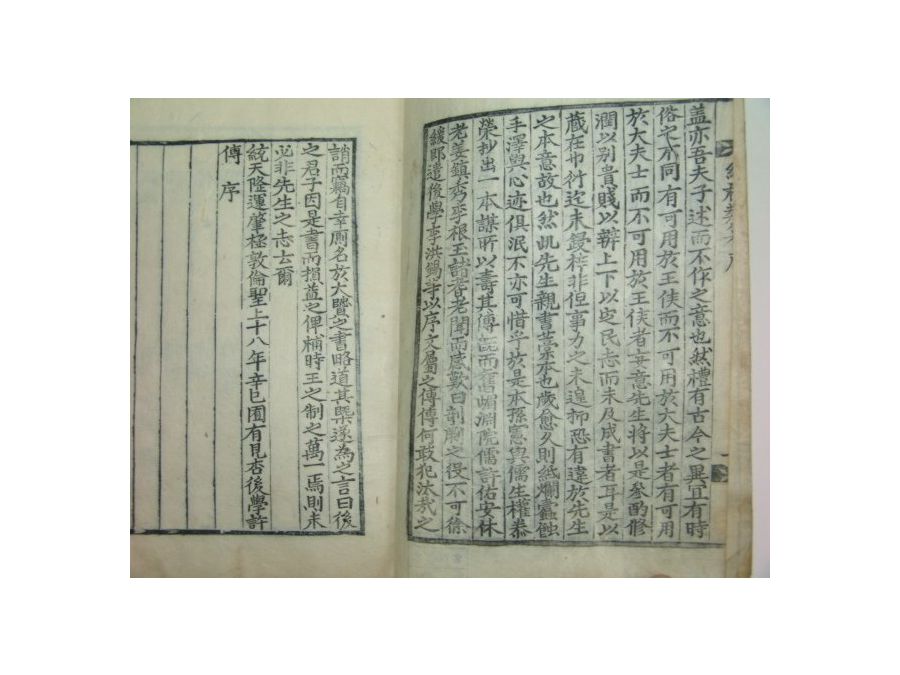 盖亦吾夫子述而不作之意也然禮有古今之異宜有時
俗之不同有可用於王侯而不可用於大夫士者有可用
於大夫士而不可用於王侯者無意先生將以是參酌修
潤以别貴賤以辨上下以定民志而未及成書者耳是以
蔵在巾衍迄未鋟梓非但事力之未遑抑恐有違於先生
之本意故也然此先生親書藁本也歲愈久則紙爛蠹蝕
手澤與心迹俱泯不亦可惜乎於是本孫憲與儒生權泰
榮抄出一本謀所以壽其傳旣而舊嵋淵院儒許佑安休
老姜鎮秀乎根玉諸耆老聞而感歎曰剞劂之役不可徐
緩卽遣後學李洪錫等以序文屬之傳傳何敢犯汰哉之
誚而竊自幸厠名於大賢之書略道其槩遂為之言曰後
之君子因是書而損益之俾補時王之制之萬一焉則未
必非先生之志云爾
統天隆運肇極敦倫聖上十八年辛巳圉有見杏後學許
傳序